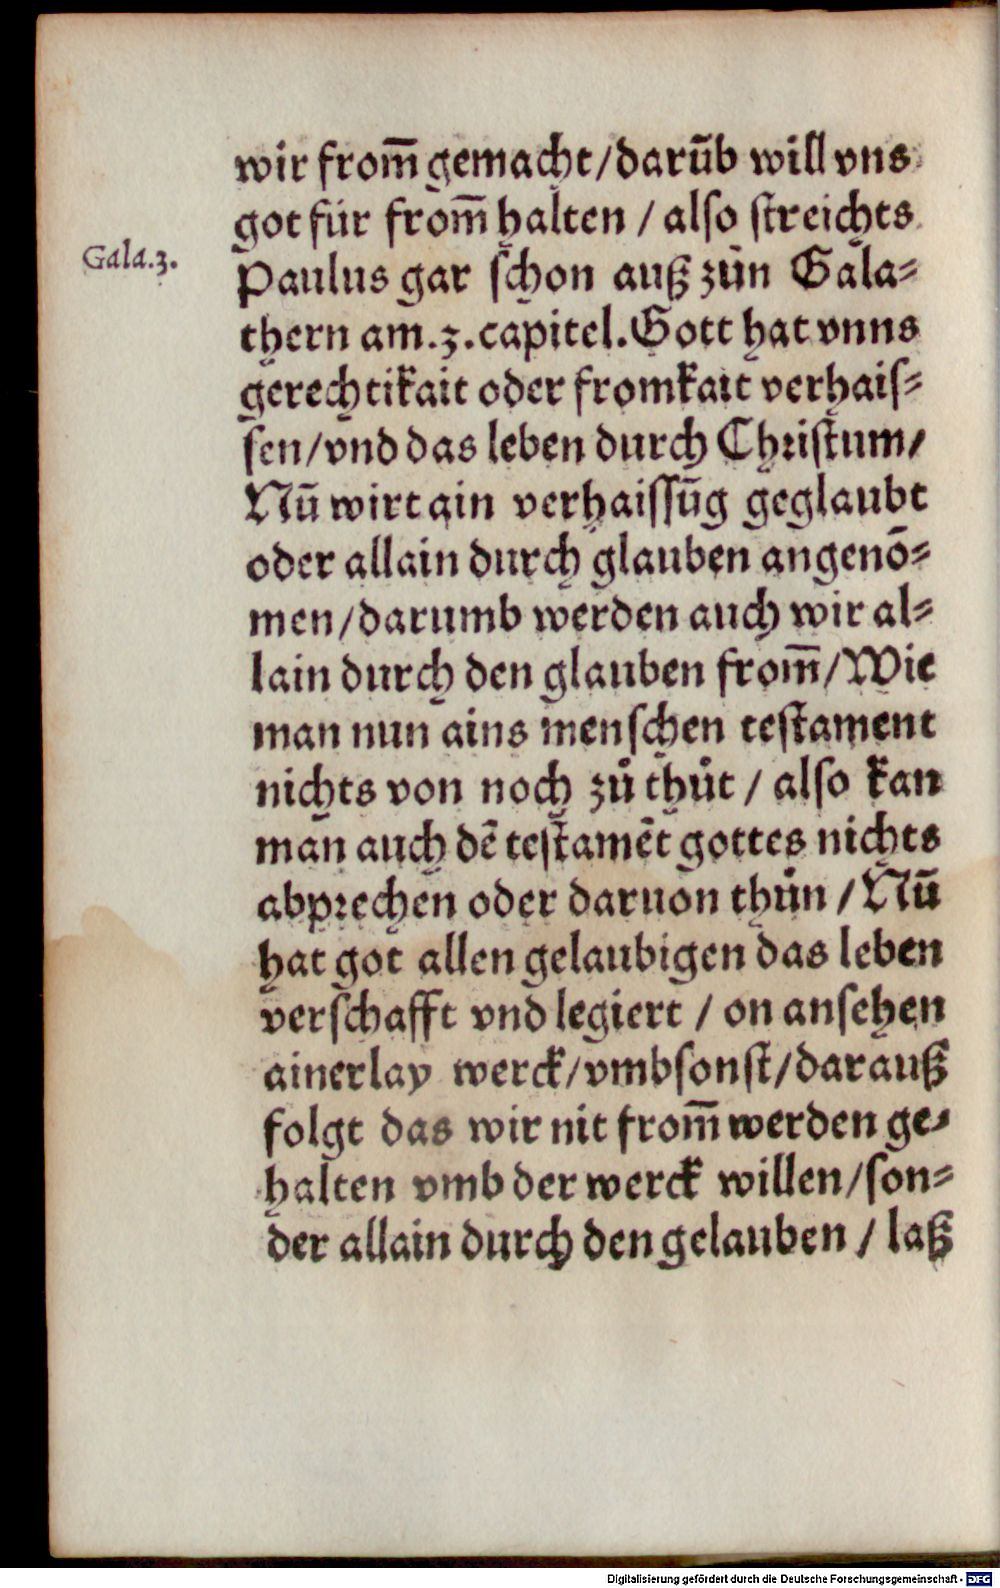 wir from̄ gemacht/darūb will vns
got für from̄ halten / also streichts
Gala.3.
Paulus gar schon auß zůn Gala⸗
thern am.3.capitel.Gott hat vnns
gerechtikait oder fromkait verhais⸗
sen/vnd das leben durch Christum/
Nū wirt ain verhaissūg geglaubt
oder allain durch glauben angenō⸗
men/darumb werden auch wir al⸗
lain durch den glauben from̄/Wie
man nun ains menschen testament
nichts von noch zů thůt / also kan
man auch dē testamēt gottes nichts
abprechen oder daruon thůn / Nū
hat got allen gelaubigen das leben
verschafft vnd legiert / on ansehen
ainerlay werck/vmbsonst/darauß
folgt das wir nit from̄ werden ge⸗
halten vmb der werck willen/son⸗
der allain durch den gelauben / laß
Digitalisierung gefördert durch die Deutsche Forschungsgemeinschaft - DFG